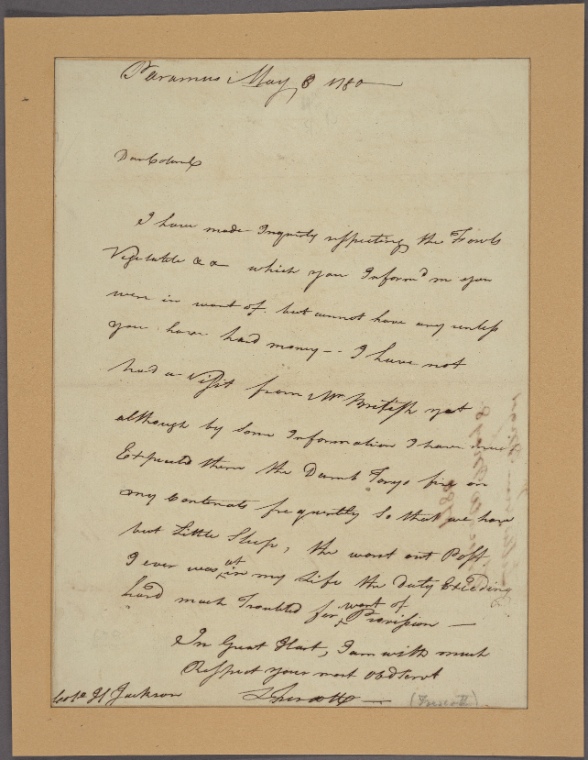 Paramus May 8 1780
Dear Colonel
I have made Inquiry respecting the Fowls
Vegetable &a which you Inform'd me you
were in want of but cannot have any unless
you have hard money -- I have not
had a Visit from Mr British yet
although by some Information I have
Expected them the Damb Torys fire on
my Centenals frequently so that we have
but Little Sleep, the worst out Post
I ever was at in my Life the Duty Exceeding
hard much Troubled for want of Provision —
In Great Hast, I am with much
Respect your most Obd Servt
Colo H Jackson